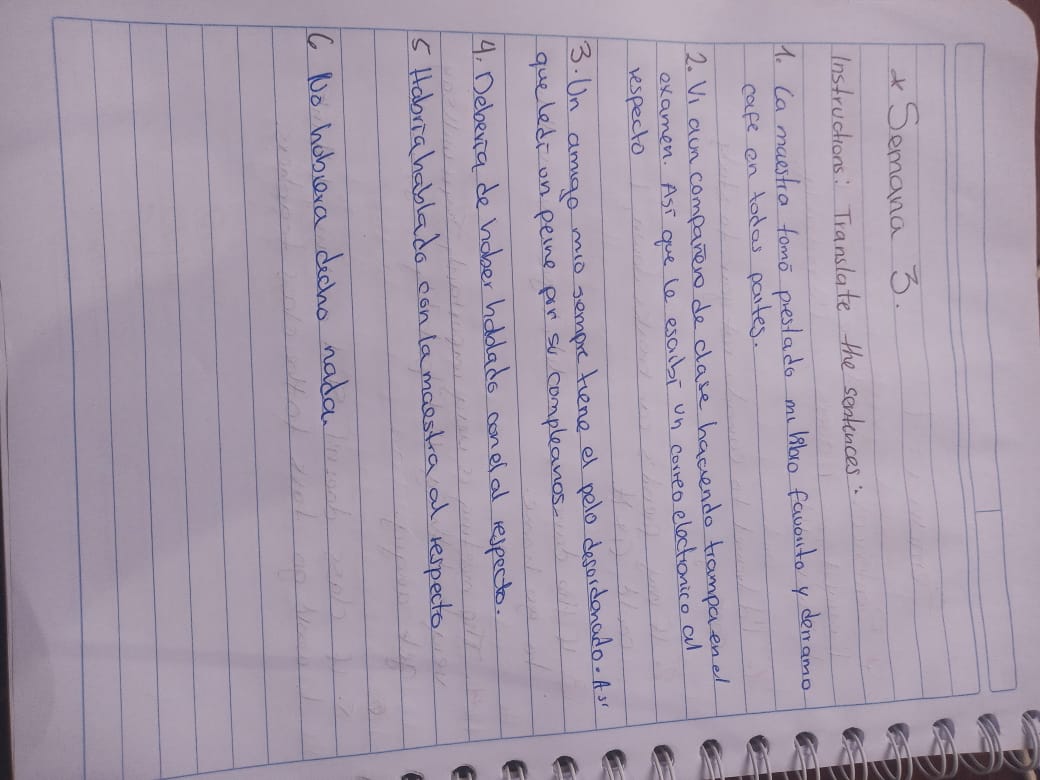 * Semana 3.
Instructions: Translate the sentences:
1. La maestra tomó prestado mi libro favorito y derramo
cafe en todas partes.
2. Vi a un compañero de clase haciendo trampa en el
examen. Así que le escribí un correo electronico al
respecto
3. Un amigo mio siempre tiene el pelo desordenado. Así
que le di un peine por su compleanos.
4. Debería de haber hablado con el al respecto.
5 Habria hablado con la maestra al respecto
6 No hubiera dicho nada.